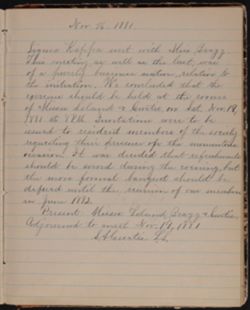 Nov. 5, 1881.
Sigma Kappa met with Miss Gragg.
This meeting as well as the last, was
of a purely business nature, relative to
the initiation. We concluded that the
exercise should be held at the rooms
of Misses Leland & Coutie, on Sat. Nov. 19,
1881 at 8 P.M. Invitations were to be
issued to resident members of the society
requesting their presence on the momentous
occasion. It was decided that refreshments
should be served during the evening, but
the more formal banquet should be
deferred until the reunion of our members
in June 1882.
Present Misses Leland, Gragg &
Adjourned to meet Nov. 19, 1881